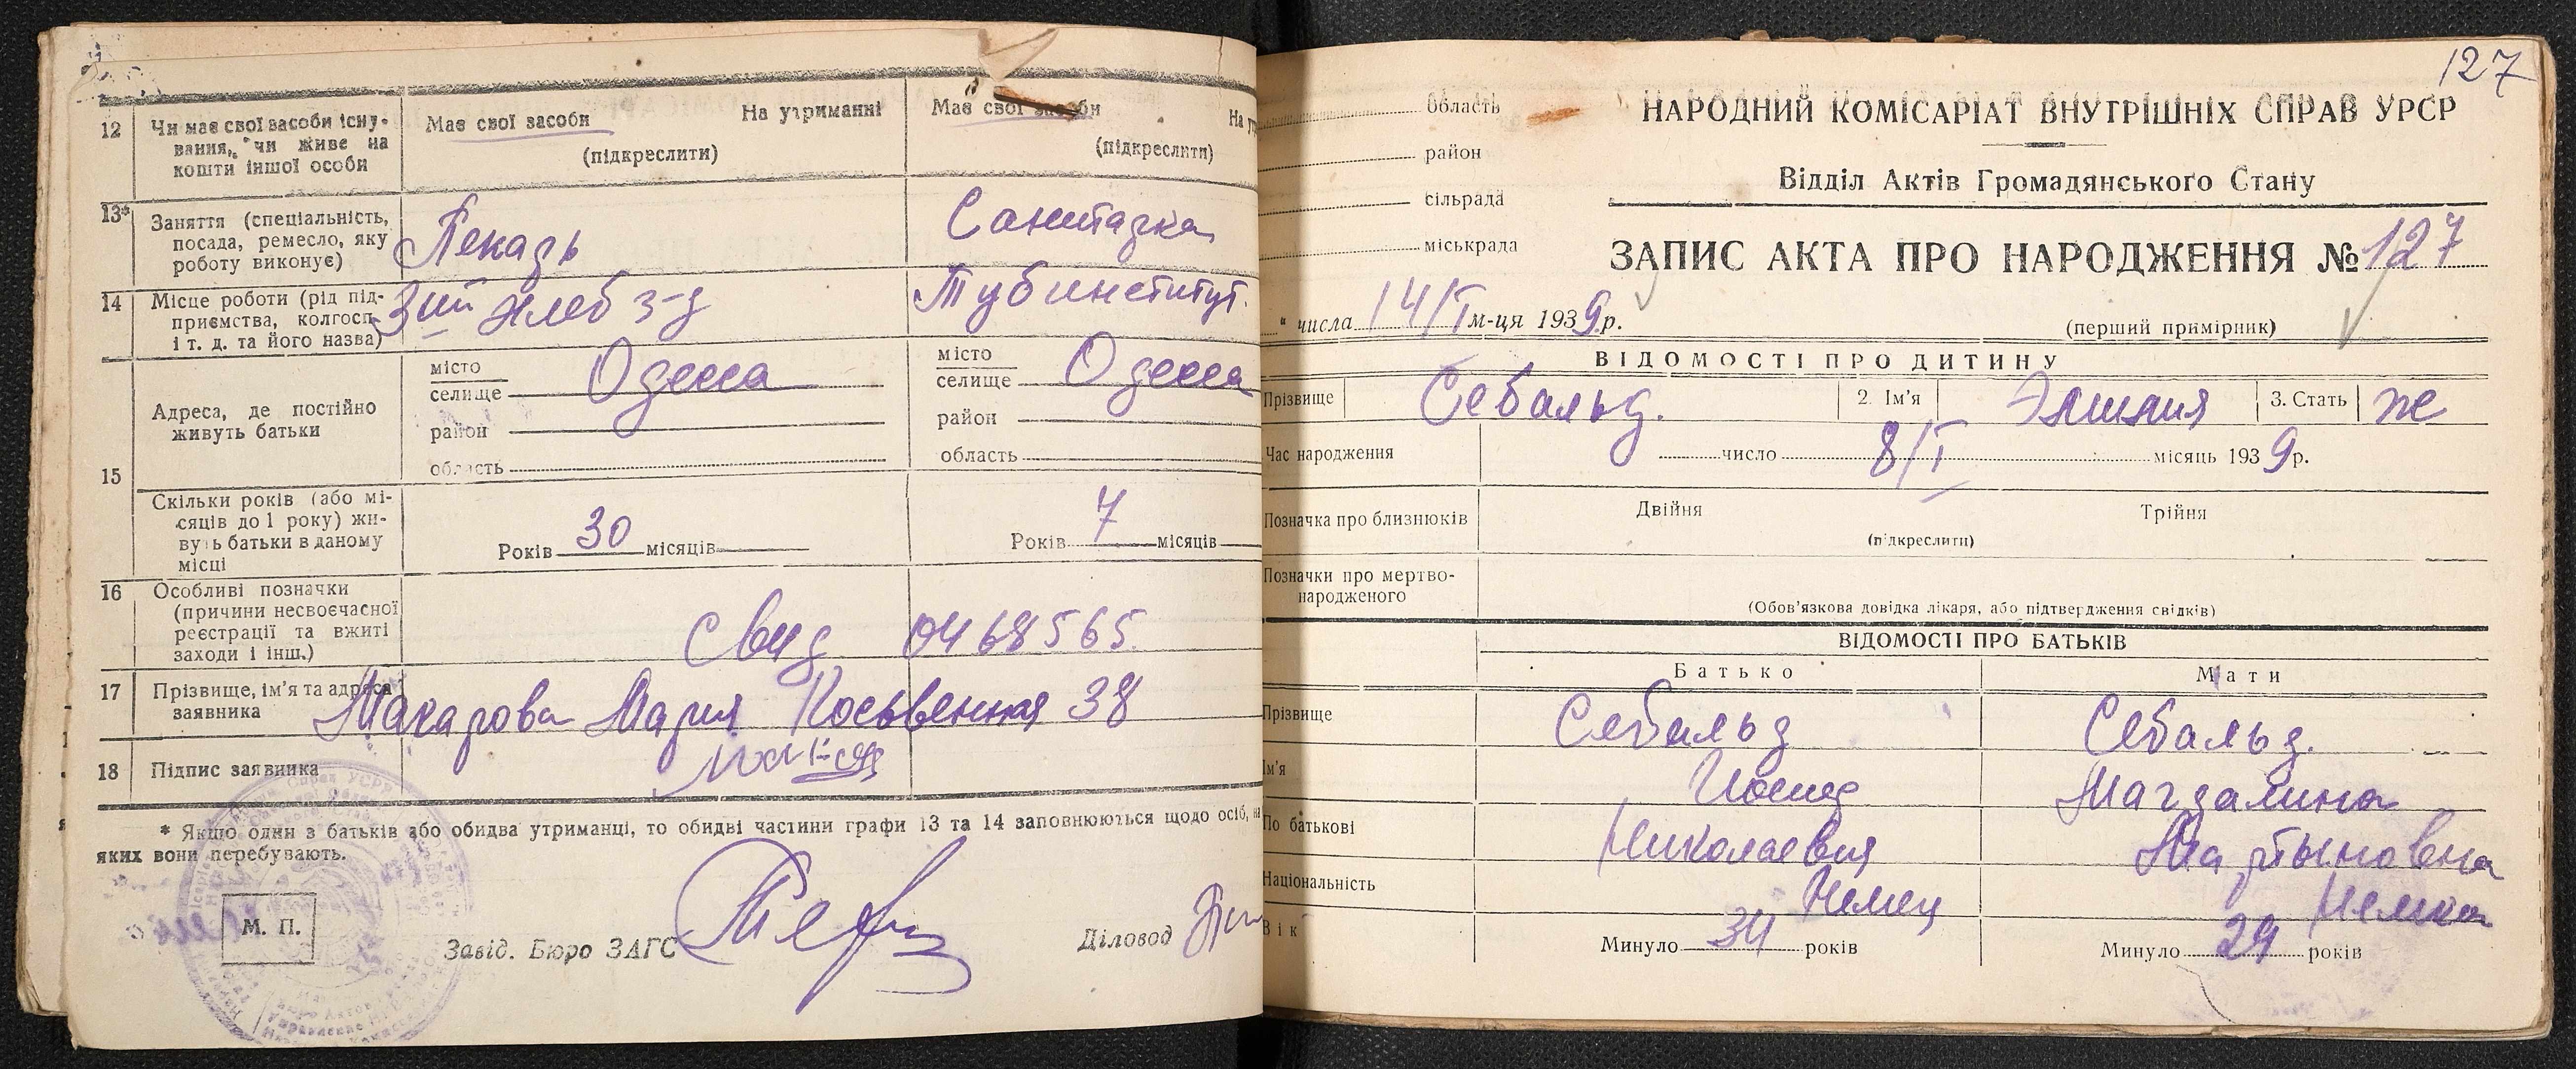 12
Чи має свої засоби існу-
вання, чи живе на
кошти іншої особи
Має свої засоби
На утриманні
(підкреслити)
Має свої засоби
На
(підкреслити)
13*
Заняття (спеціальність,
посада, ремесло, яку
роботу виконує)
Пекарь
Санитарка
14
Місце роботи (рід під-
приємства, колгосп
і т. д. та його назва)
3ий хлеб з-д
Тубинститут.
15
Адреса, де постійно
живуть батьки
місто
селище Одесса
район
область
місто
селище Одесса
район
область
Скільки років (або мі-
сяців до 1 року) жи-
вуть батьки в даному
місці
Років 30 місяців
Років 7 місяців
16
Особливі позначки
(причини несвоєчасної
реєстрації та вжиті
заходи і інш.)
Свид 0468565.
17
Прізвище, ім'я та адреса
заявника
Макарова Мария Косвенная 38
18
Підпис заявника
* Якщо один з батьків або обидва утриманці, то обидві частини графи 13 та 14 заповнюються щодо осіб, на
яких вони перебувають.
М. П.
Завід. Бюро ЗАГС
Діловод
127
область
район
сільрада
міськрада
НАРОДНИЙ КОМІСАРІАТ ВНУТРІШНІХ СПРАВ УРСР
Відділ Актів Громадянського Стану
ЗАПИС АКТА ПРО НАРОДЖЕННЯ № 127
" числа 14/I м-ця 1939 р.
(перший примірник)
ВІДОМОСТІ ПРО ДИТИНУ
Прізвище
Себальд.
2. Ім'я
Эмилия
3. Стать
ж
Час народження
число 8/I місяць 1939 р.
Позначка про близнюків
Двійня
Трійня
(підкреслити)
Позначки про мертво-
народженого
(Обов'язкова довідка лікаря, або підтвердження свідків)
ВІДОМОСТІ ПРО БАТЬКІВ
Батько
Мати
Прізвище
Себальд
Себальд.
Ім'я
Иосиф
Магдалина
По батькові
Николаевич
Мартыновна
Національність
Немец
Немка
Вік
Минуло 34 років
Минуло 29 років